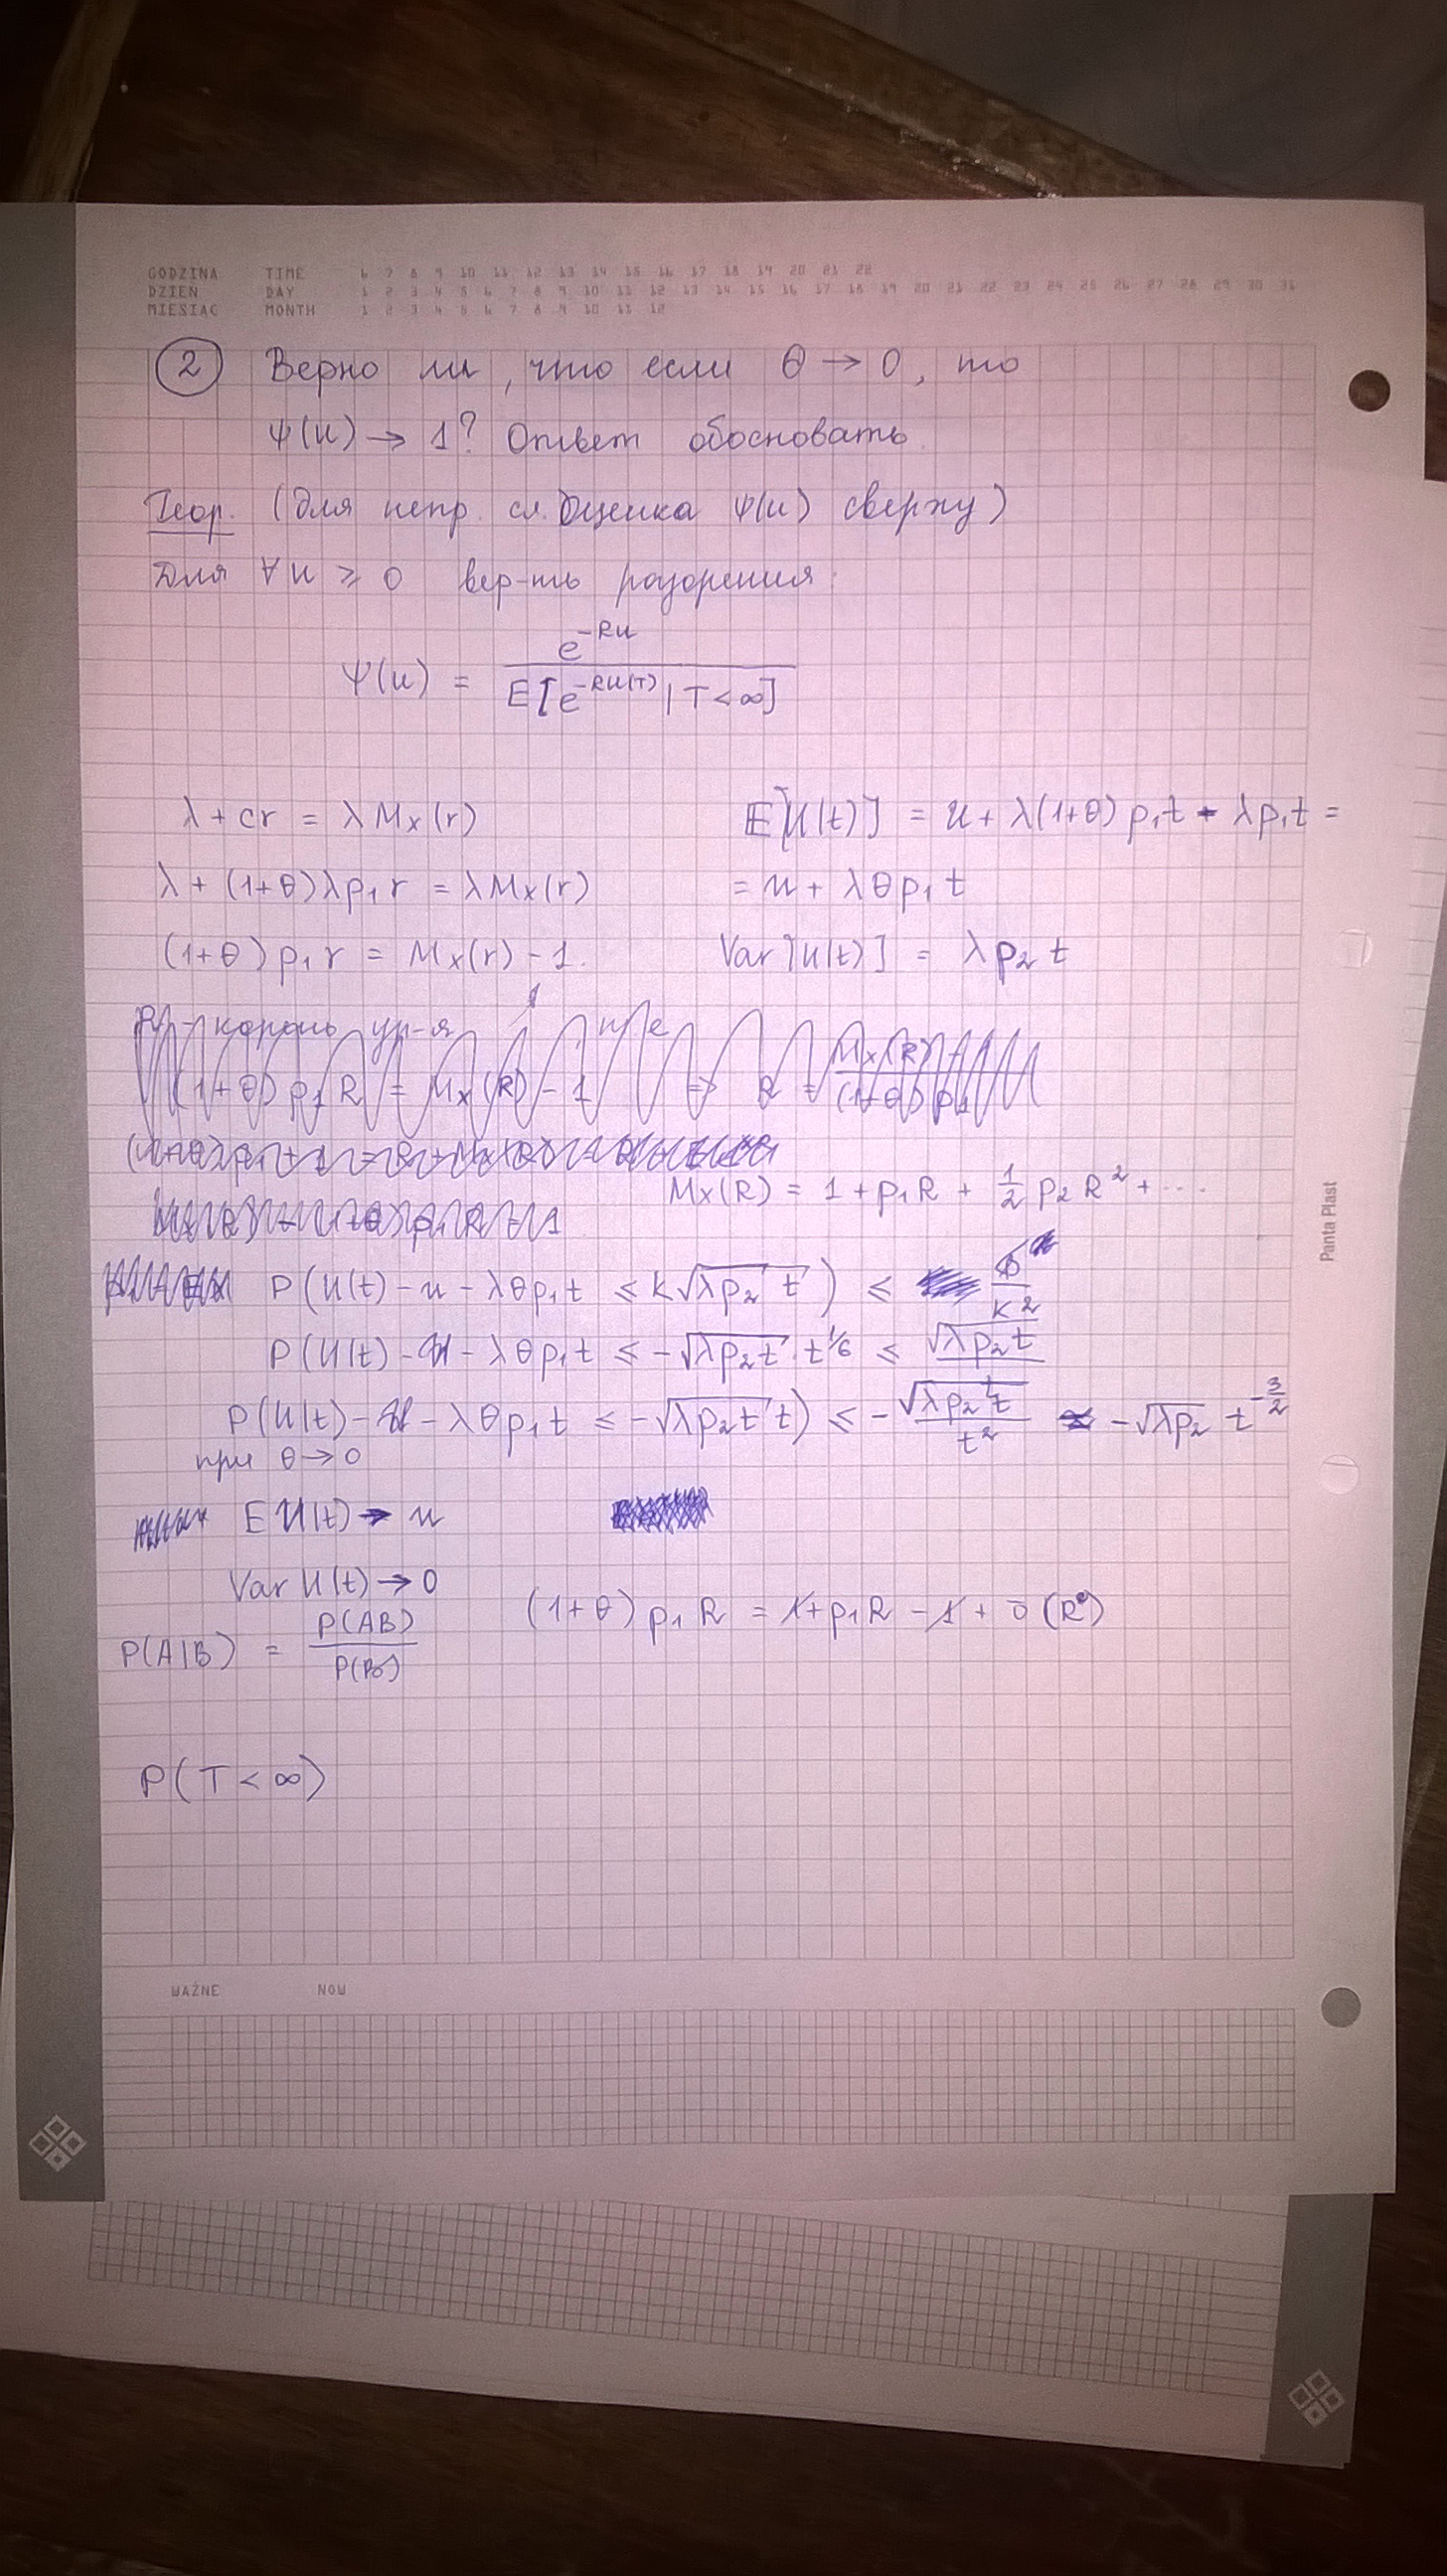 GODZINA TIME 6 7 8 9 10 11 12 13 14 15 16 17 18 19 20 21 22
DZIEŃ DAY 1 2 3 4 5 6 7 8 9 10 11 12 13 14 15 16 17 18 19 20 21 22 23 24 25 26 27 28 29 30 31
MIESIĄC MONTH 1 2 3 4 5 6 7 8 9 10 11 12
② Верно ли, что если θ → 0, то
Ψ(u) → 1? Ответ обосновать.
Теор. (для непр. сл. Оценка Ψ(u) сверху)
Для ∀u ≥ 0 вер-ть разорения:
Ψ(u) = e^{-Ru} / E[e^{-RU(T)} | T < ∞]
λ + cr = λ M_X(r) E[U(t)] = u + λ(1+θ) p₁t - λp₁t =
λ + (1+θ)λp₁r = λM_X(r) = u + λθp₁t
(1+θ)p₁r = M_X(r) - 1. Var[U(t)] = λp₂t
R - корень ур-я
(1+θ) p₁ R = M_X(R) - 1 => R =
M_X(R) = 1 + p₁R + ½ p₂R² + ...
P(U(t) - u - λθp₁t ≤ k√(λp₂t)) ≤ /k²
P(U(t) - u - λθp₁t ≤ -√(λp₂t) · t^{1/6} ≤ √(λp₂t)
P(U(t) - u - λθp₁t ≤ -√(λp₂t) t) ≤ -√(λp₂t)/t² - √(λp₂) t^{-3/2}
при θ → 0
E U(t) → u
Var U(t) → 0
(1+θ) p₁R = 1 + p₁R - 1 + ō(R)
P(A|B) = P(AB)/P(B)
P(T < ∞)
WAŻNE NOW
Panta Plast